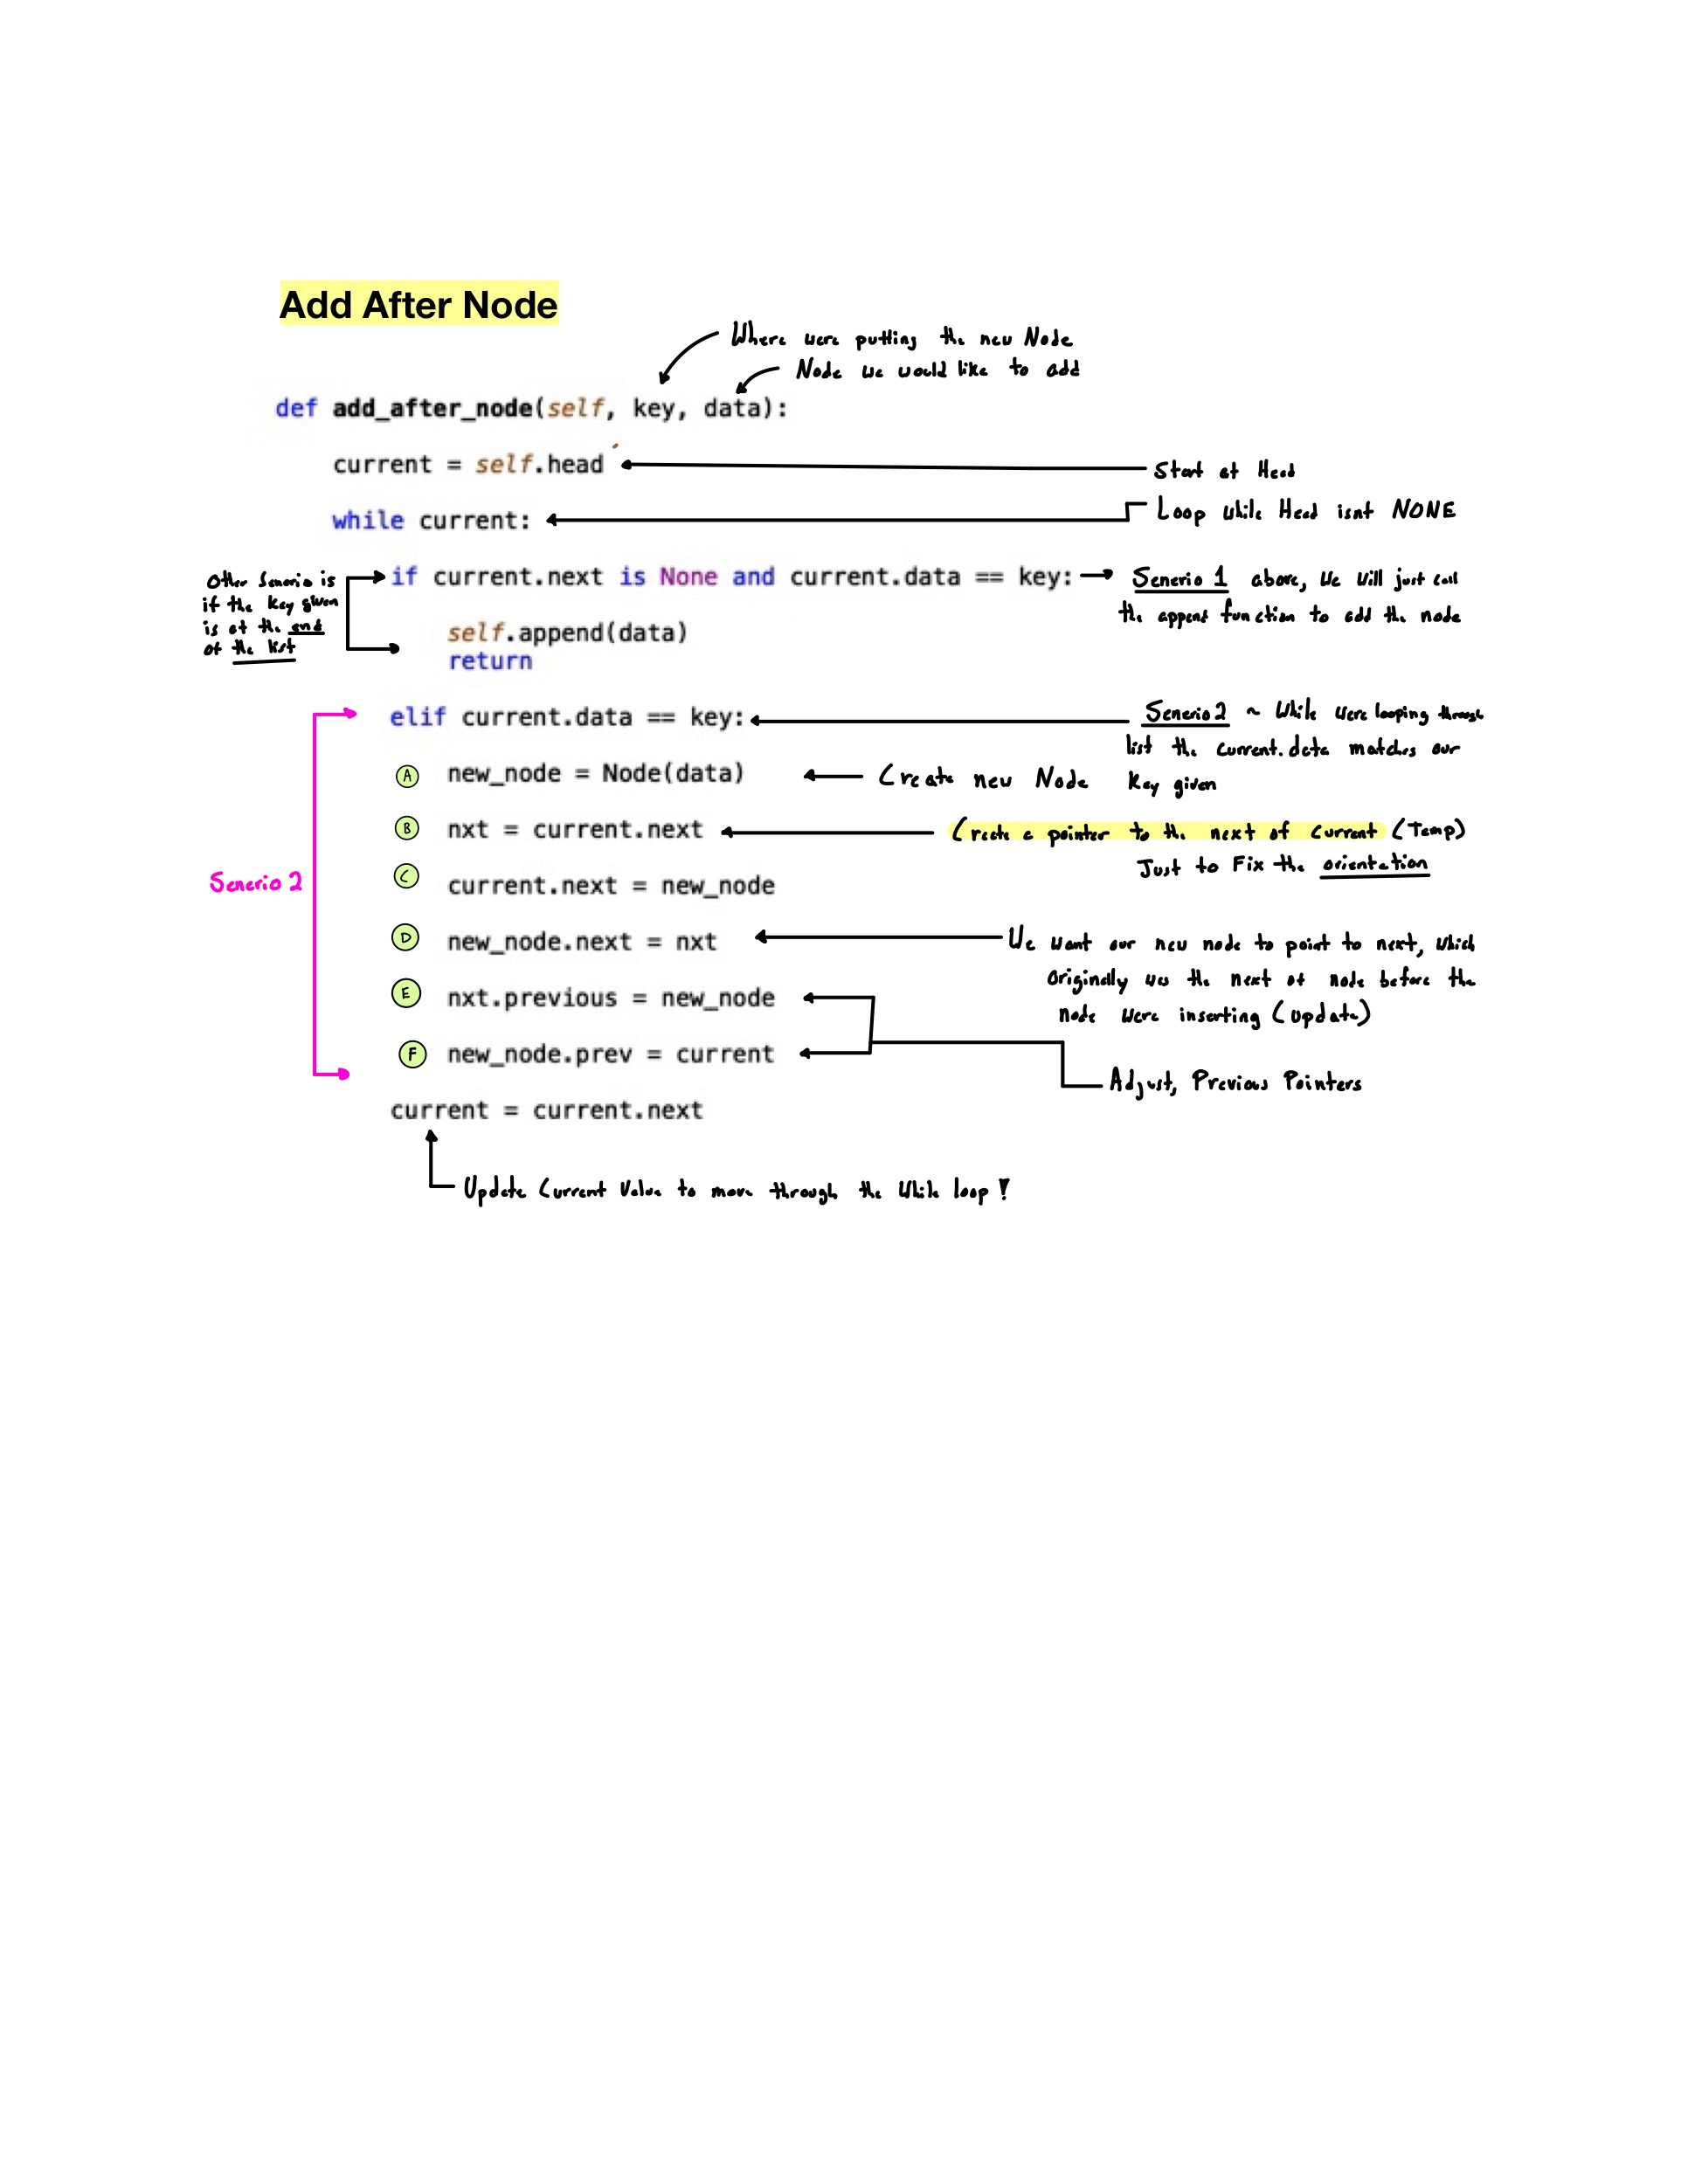 Add After Node
Where were putting the new Node
Node we would like to add
def add_after_node(self, key, data):
current = self.head
Start at Head
while current:
Loop while Head isnt NONE
Other Senerio is
if the key given
is at the end
of the list
if current.next is None and current.data == key:
Senerio 1 above, we will just call
the append function to add the node
self.append(data)
return
elif current.data == key:
Senerio 2 ~ While were looping through
list the current.data matches our
key given
Senerio 2
A new_node = Node(data)
Create new Node
B nxt = current.next
Create a pointer to the next of current (Temp)
Just to Fix the orientation
C current.next = new_node
D new_node.next = nxt
We want our new node to point to next, which
originally was the next of node before the
node were inserting (update)
E nxt.previous = new_node
F new_node.prev = current
Adjust, Previous Pointers
current = current.next
Update Current Value to move through the While loop!